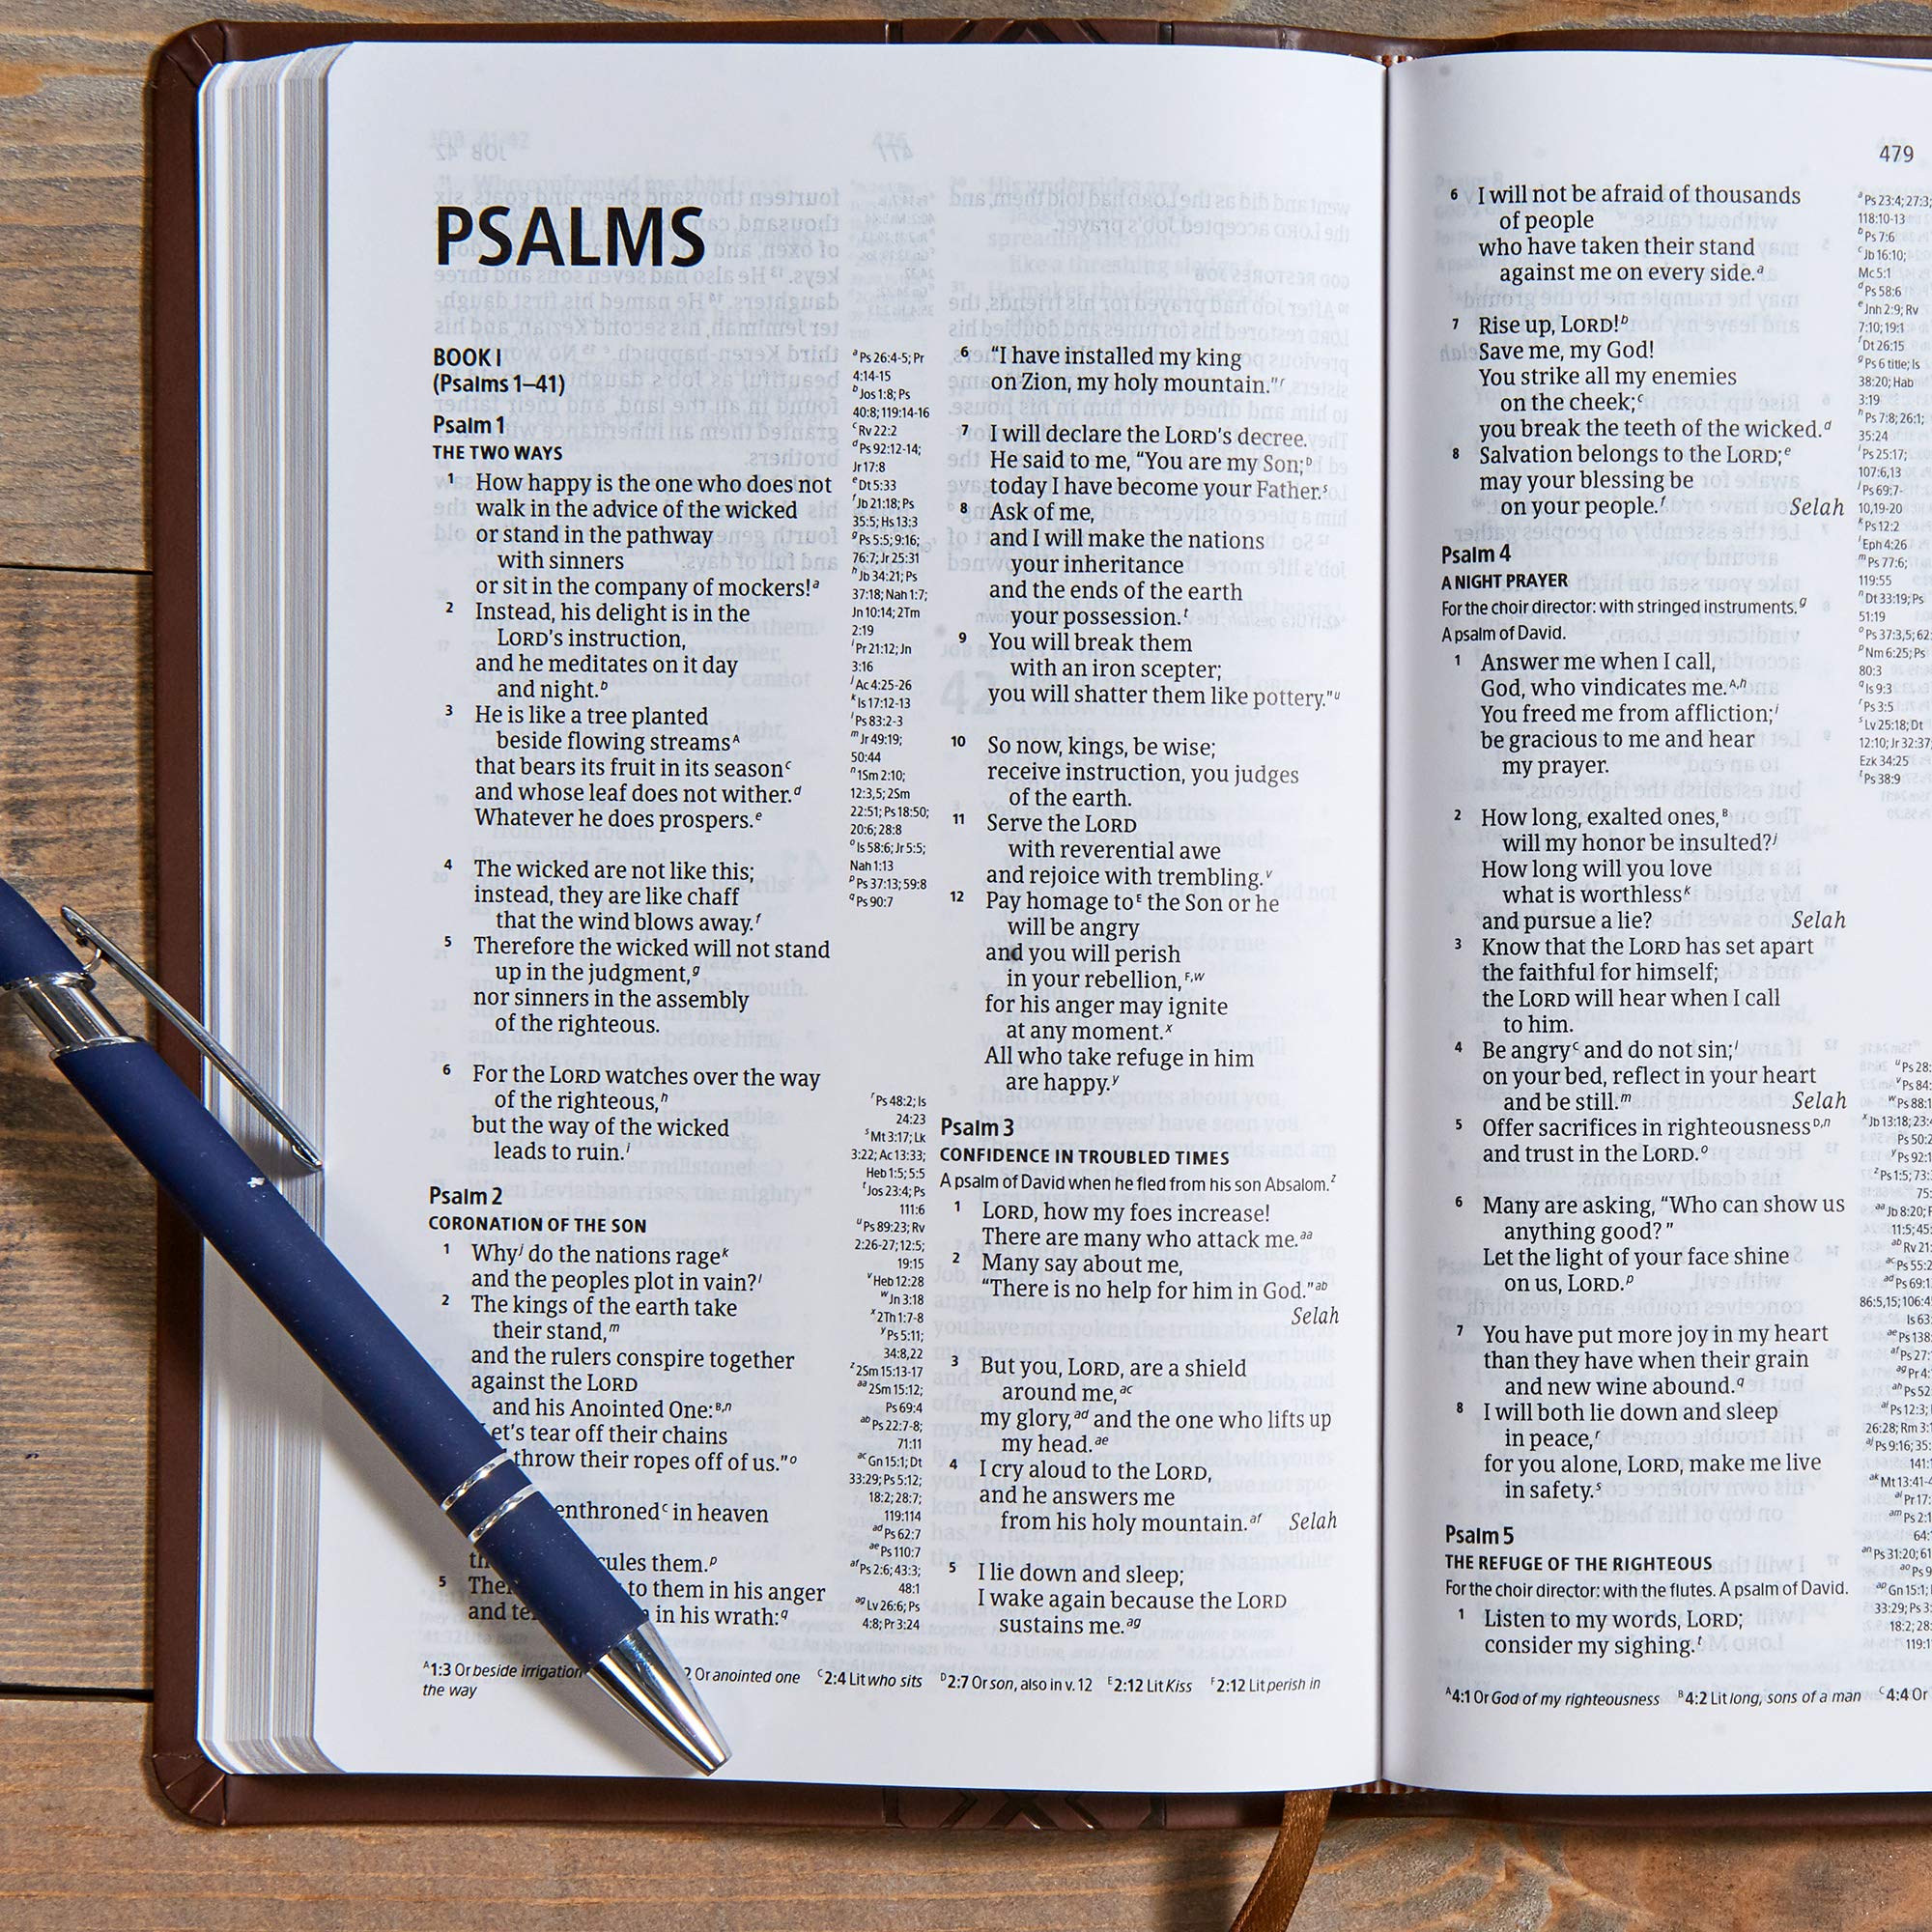 PSALMS
BOOK I
(Psalms 1–41)
Psalm 1
THE TWO WAYS
1 How happy is the one who does not
walk in the advice of the wicked
or stand in the pathway
with sinners
or sit in the company of mockers!a
2 Instead, his delight is in the
LORD's instruction,
and he meditates on it day
and night.b
3 He is like a tree planted
beside flowing streamsA
that bears its fruit in its seasonc
and whose leaf does not wither.d
Whatever he does prospers.e
4 The wicked are not like this;
instead, they are like chaff
that the wind blows away.f
5 Therefore the wicked will not stand
up in the judgment,g
nor sinners in the assembly
of the righteous.
6 For the LORD watches over the way
of the righteous,h
but the way of the wicked
leads to ruin.i
Psalm 2
CORONATION OF THE SON
1 Whyj do the nations ragek
and the peoples plot in vain?l
2 The kings of the earth take
their stand,m
and the rulers conspire together
against the LORD
and his Anointed One:B,n
et's tear off their chains
throw their ropes off of us."o
enthronedC in heaven
cules them.p
5 to them in his anger
and in his wrath:q
a Ps 26:4-5; Pr
4:14-15
b Jos 1:8; Ps
40:8; 119:14-16
c Rv 22:2
d Ps 92:12-14;
Jr 17:8
e Dt 5:33
f Jb 21:18; Ps
35:5; Hs 13:3
g Ps 5:5; 9:16;
76:7; Jr 25:31
h Jb 34:21; Ps
37:18; Nah 1:7;
Jn 10:14; 2Tm
2:19
i Pr 21:12; Jn
3:16
j Ac 4:25-26
k Is 17:12-13
l Ps 83:2-3
m Jr 49:19;
50:44
n 1Sm 2:10;
12:3,5; 2Sm
22:51; Ps 18:50;
20:6; 28:8
o Is 58:6; Jr 5:5;
Nah 1:13
p Ps 37:13; 59:8
q Ps 90:7
r Ps 48:2; Is
24:23
s Mt 3:17; Lk
3:22; Ac 13:33;
Heb 1:5; 5:5
t Jos 23:4; Ps
111:6
u Ps 89:23; Rv
2:26-27; 12:5;
19:15
v Heb 12:28
w Jn 3:18
x 2Th 1:7-8
y Ps 5:11;
34:8,22
z 2Sm 15:13-17
aa 2Sm 15:12;
Ps 69:4
ab Ps 22:7-8;
71:11
ac Gn 15:1; Dt
33:29; Ps 5:12;
18:2; 28:7;
119:114
ad Ps 62:7
ae Ps 110:7
af Ps 2:6; 43:3;
48:1
ag Lv 26:6; Ps
4:8; Pr 3:24
6 "I have installed my king
on Zion, my holy mountain."r
7 I will declare the LORD's decree.
He said to me, "You are my Son;D
today I have become your Father.s
8 Ask of me,
and I will make the nations
your inheritance
and the ends of the earth
your possession.t
9 You will break them
with an iron scepter;
you will shatter them like pottery."u
10 So now, kings, be wise;
receive instruction, you judges
of the earth.
11 Serve the LORD
with reverential awe
and rejoice with trembling.v
12 Pay homage toE the Son or he
will be angry
and you will perish
in your rebellion,F,w
for his anger may ignite
at any moment.x
All who take refuge in him
are happy.y
Psalm 3
CONFIDENCE IN TROUBLED TIMES
A psalm of David when he fled from his son Absalom.z
1 LORD, how my foes increase!
There are many who attack me.aa
2 Many say about me,
"There is no help for him in God."ab
Selah
3 But you, LORD, are a shield
around me,ac
my glory,ad and the one who lifts up
my head.ae
4 I cry aloud to the LORD,
and he answers me
from his holy mountain.af Selah
5 I lie down and sleep;
I wake again because the LORD
sustains me.ag
A1:3 Or beside irrigation 2 Or anointed one C2:4 Lit who sits D2:7 Or son, also in v. 12 E2:12 Lit Kiss F2:12 Lit perish in
the way
479
6 I will not be afraid of thousands
of people
who have taken their stand
against me on every side.a
7 Rise up, LORD!b
Save me, my God!
You strike all my enemies
on the cheek;c
you break the teeth of the wicked.d
8 Salvation belongs to the LORD;e
may your blessing be
on your people.f Selah
Psalm 4
A NIGHT PRAYER
For the choir director: with stringed instruments.g
A psalm of David.
1 Answer me when I call,
God, who vindicates me.A,h
You freed me from affliction;i
be gracious to me and hear
my prayer.
2 How long, exalted ones,B
will my honor be insulted?j
How long will you love
what is worthlessk
and pursue a lie? Selah
3 Know that the LORD has set apart
the faithful for himself;
the LORD will hear when I call
to him.
4 Be angryC and do not sin;l
on your bed, reflect in your heart
and be still.m Selah
5 Offer sacrifices in righteousnessD,n
and trust in the LORD.o
6 Many are asking, "Who can show us
anything good?"
Let the light of your face shine
on us, LORD.p
7 You have put more joy in my heart
than they have when their grain
and new wine abound.q
8 I will both lie down and sleep
in peace,r
for you alone, LORD, make me live
in safety.s
Psalm 5
THE REFUGE OF THE RIGHTEOUS
For the choir director: with the flutes. A psalm of David.
1 Listen to my words, LORD;
consider my sighing.t
A4:1 Or God of my righteousness B4:2 Lit long, sons of a man C4:4 Or
a Ps 23:4; 27:3;
118:10-13
b Ps 7:6
c Jb 16:10;
Mc 5:1
d Ps 58:6
e Jnh 2:9; Rv
7:10; 19:1
f Dt 26:15
g Ps 6 title; Is
38:20; Hab
3:19
h Ps 7:8; 26:1;
35:24
i Ps 25:17;
107:6,13
j Ps 69:7-
10,19-20
k Ps 12:2
l Eph 4:26
m Ps 77:6;
119:55
n Dt 33:19; Ps
51:19
o Ps 37:3,5; 62:
p Nm 6:25; Ps
80:3
q Is 9:3
r Ps 3:5
s Lv 25:18; Dt
12:10; Jr 32:37;
Ezk 34:25
t Ps 38:9